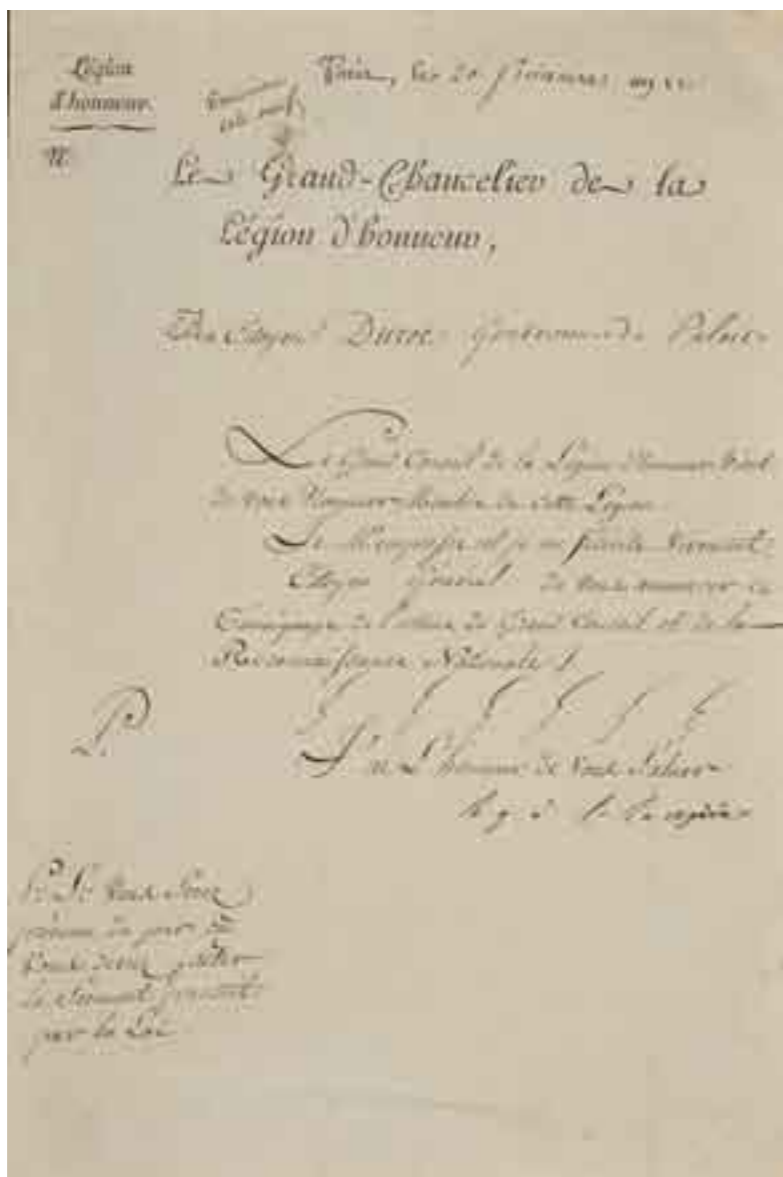 Légion
d'honneur.
Paris, le 20 frimaire an 12
N.
Le Grand-Chancelier de la
Légion d'honneur,
Citoyen Duroc Gouverneur du Palais
Le Grand Conseil de la Légion d'honneur vient
de vous Nommer Membre de cette Légion
Je M'empresse et je me félicite vivement
Citoyen Général de vous annoncer ce
Témoignage de l'estime du Grand Conseil et de la
Reconnaissance Nationale
J'ai L'honneur de vous Saluer
P.
P. S. Vous Serez
prévenu du jour où
Vous devez prêter
le Serment prescrit
par la Loi